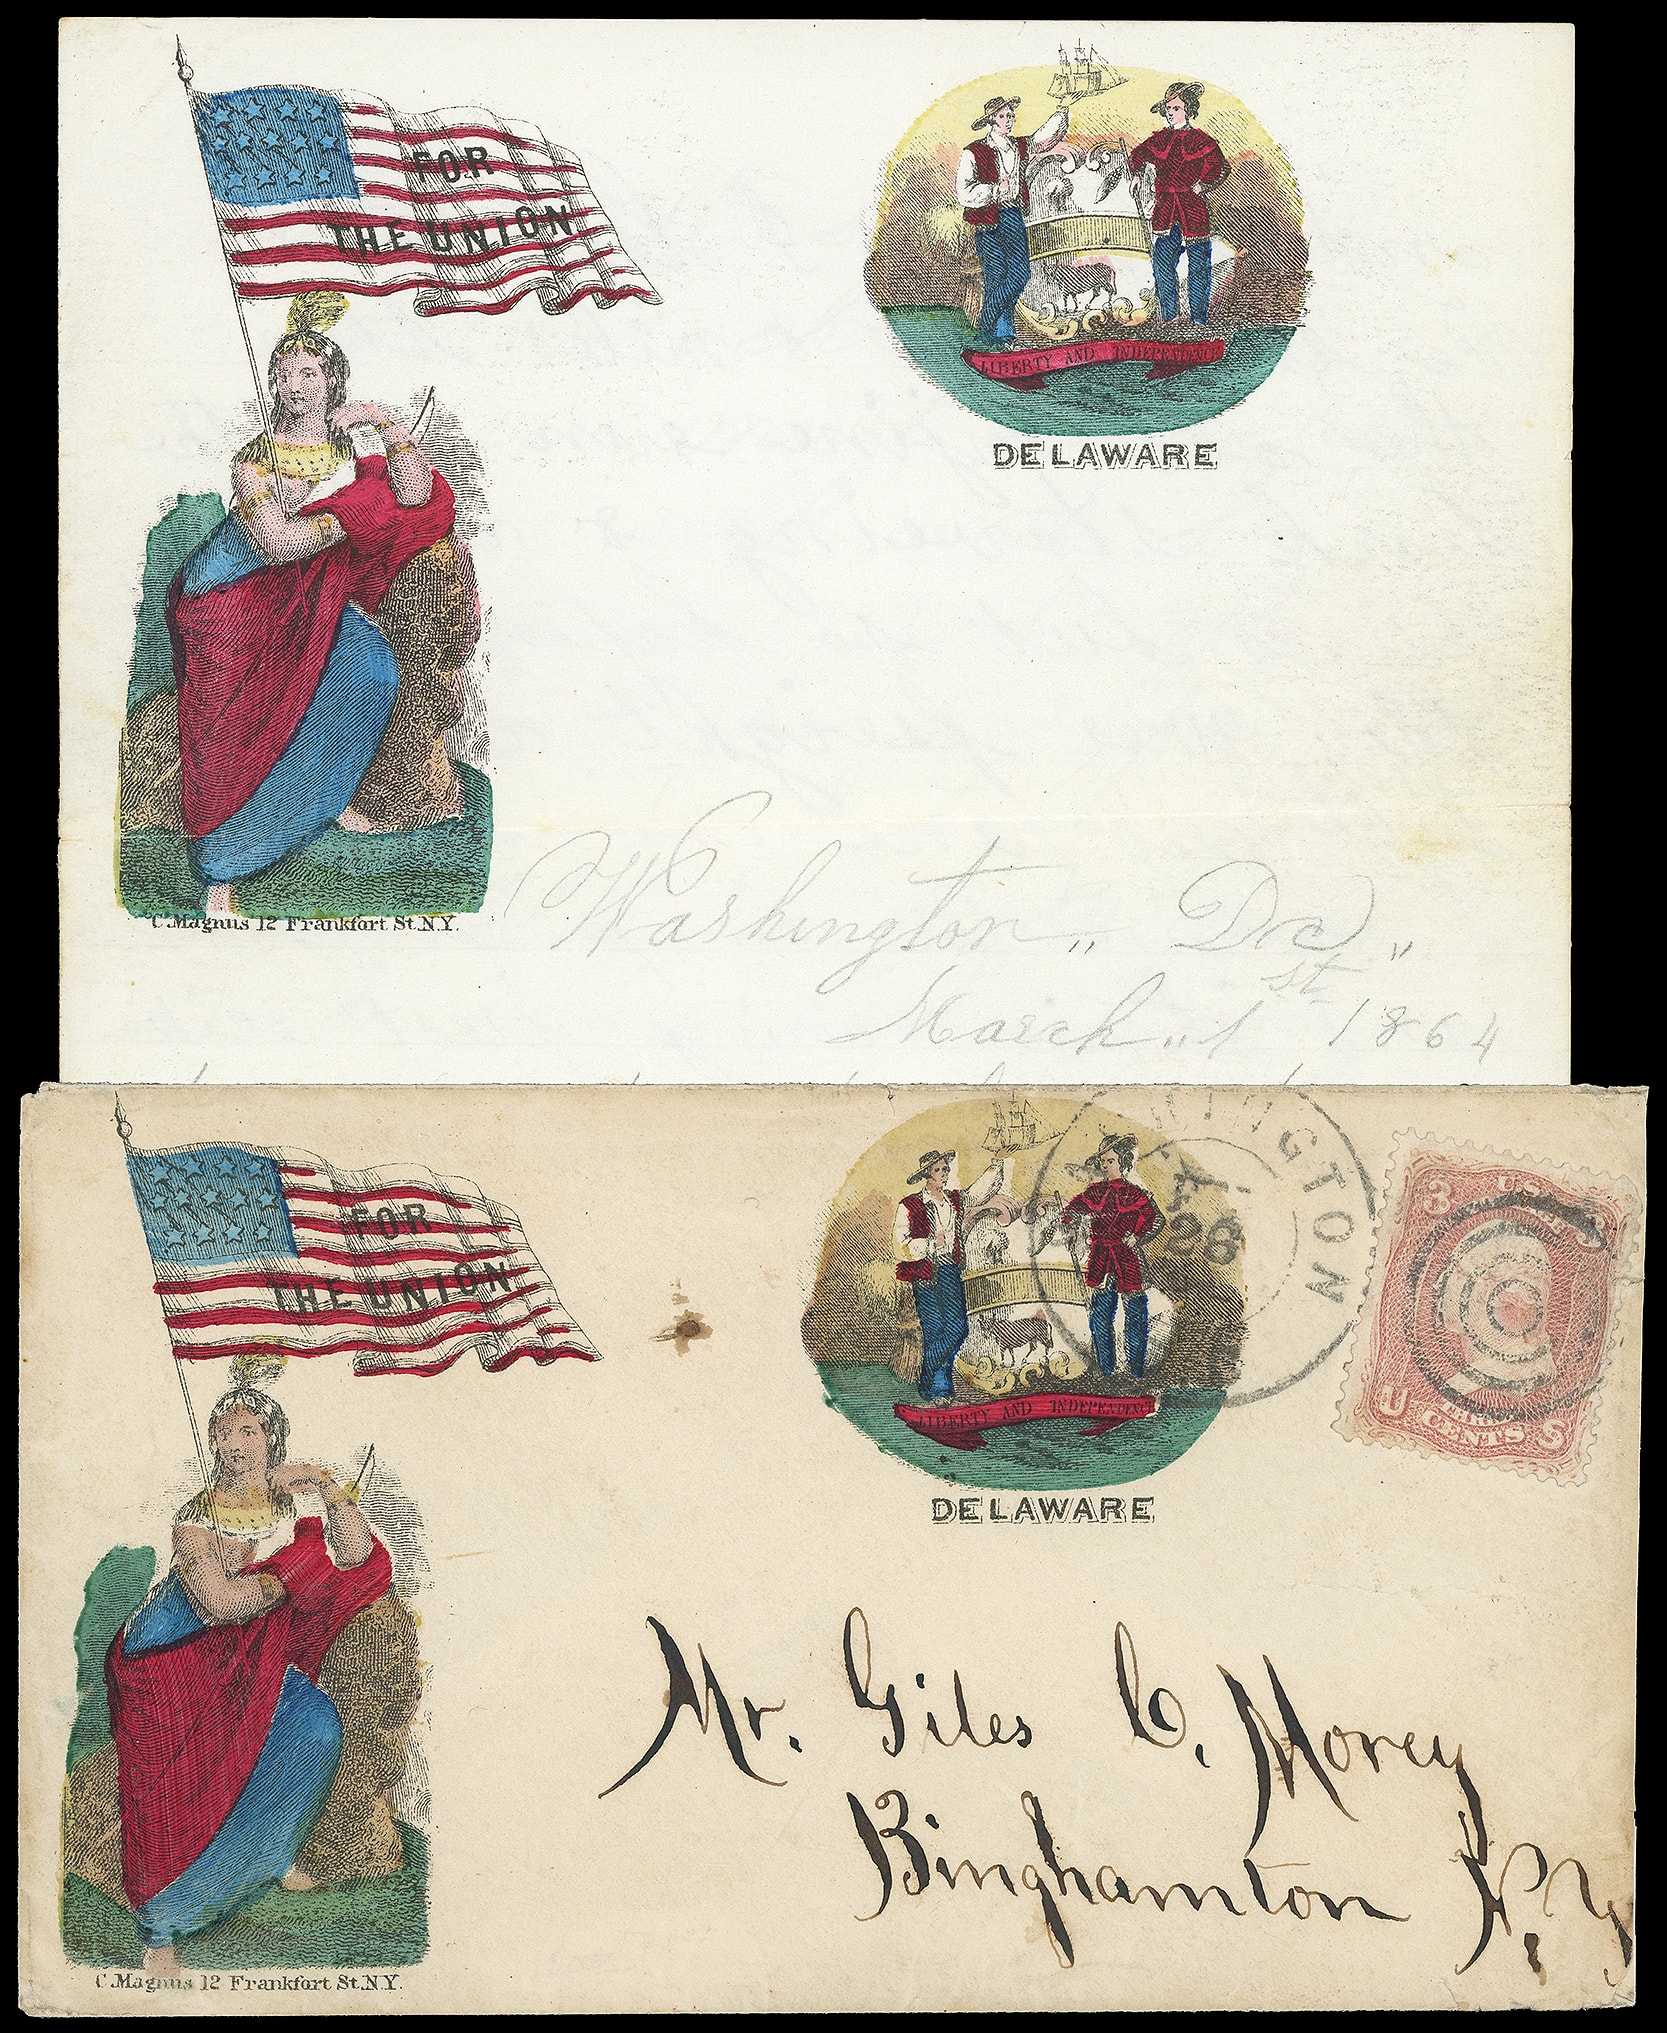 FOR
THE UNION
LIBERTY AND INDEPENDENCE
DELAWARE
C. Magnus 12 Frankfort St. N.Y.
Washington,, Dc,,
March,, 1st 1864
FOR
THE UNION
LIBERTY AND INDEPENDENCE
DELAWARE
C. Magnus 12 Frankfort St. N.Y.
INGTON
28
3 U S 3
U CENTS S
Mr. Giles C. Morey
Binghamton N.Y.